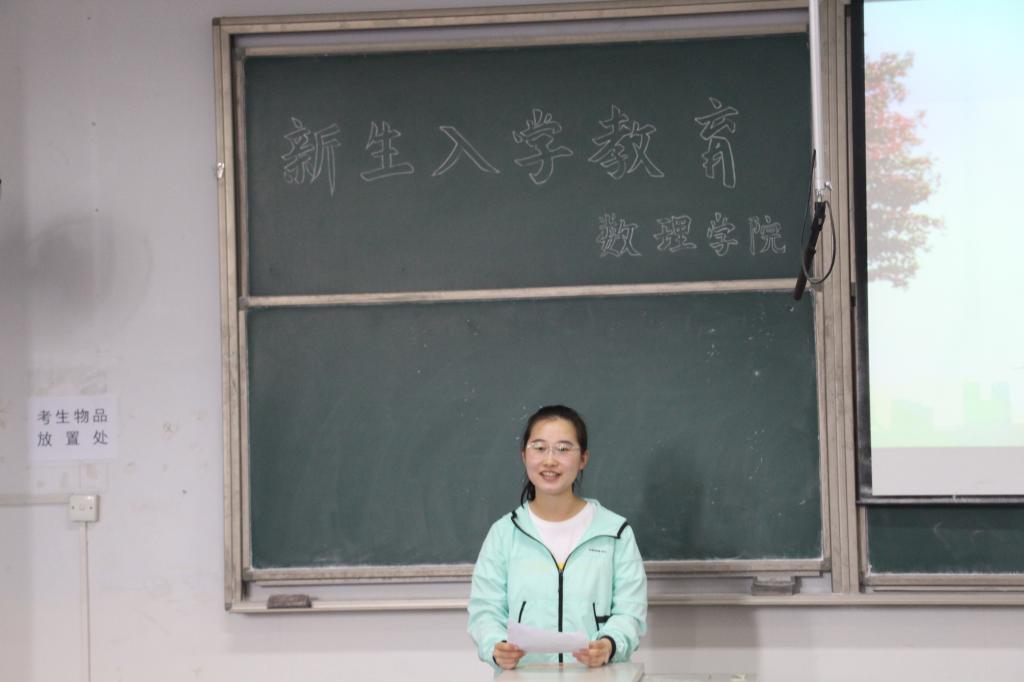 新生入学教育
数理学院
考生物品
放置处